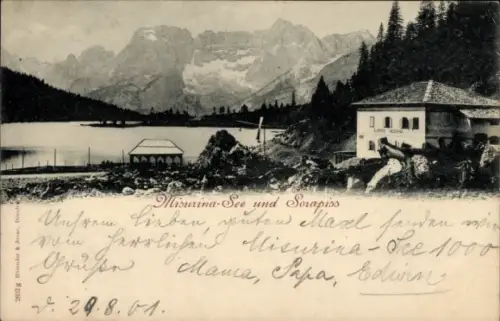 Misurina-See und Sorapiss
Unsrem lieben, guten Maxl senden wir
vom herrlichen Misurina-See 1000
Grüsse Mama, Papa, Edwin
d. 29.8.01